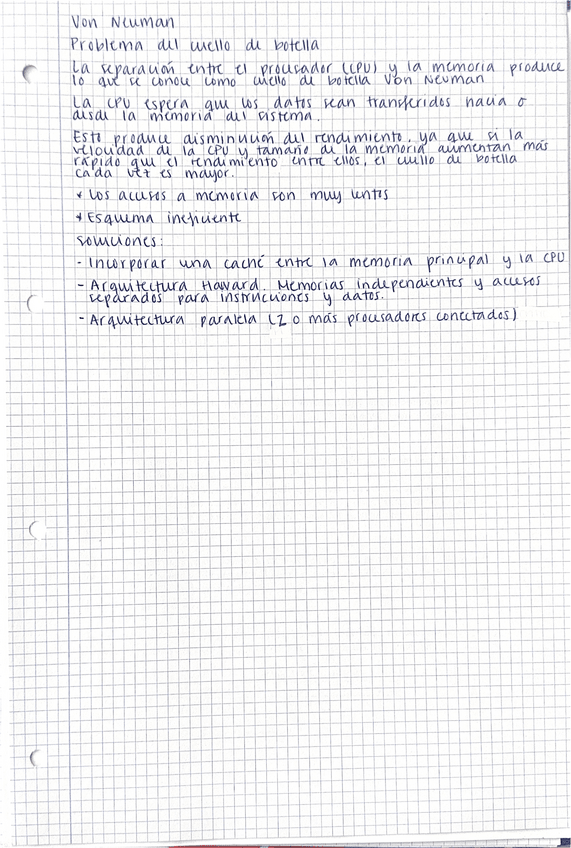 Von Neuman
Problema del cuello de botella
La separación entre el procesador (CPU) y la memoria produce
lo que se conoce como cuello de botella Von Neuman
La CPU espera que los datos sean transferidos hacia o
desde la memoria del sistema.
Esto produce disminución del rendimiento, ya que si la
velocidad de la CPU y tamaño de la memoria aumentan más
rápido que el rendimiento entre ellos, el cuello de botella
cada vez es mayor.
* Los accesos a memoria son muy lentos
* Esquema ineficiente
Soluciones:
- Incorporar una caché entre la memoria principal y la CPU
- Arquitectura Havard. Memorias independientes y accesos
separados para instrucciones y datos.
- Arquitectura paralela (2 o más procesadores conectados)